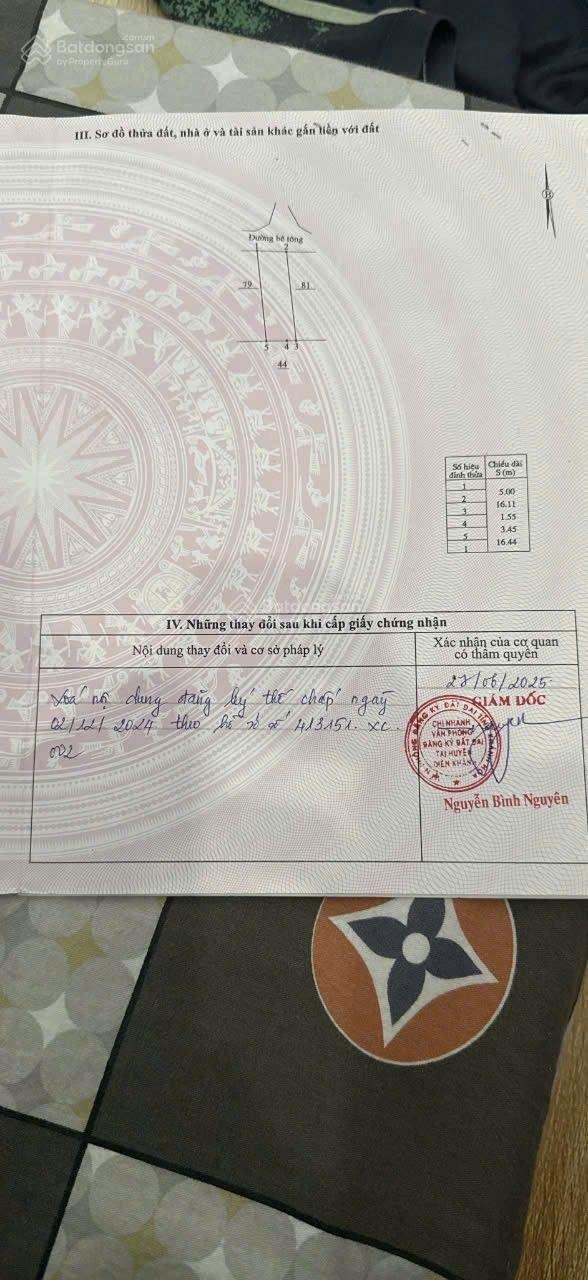 .com.vn
Batdongsan
by PropertyGuru
III. Sơ đồ thửa đất, nhà ở và tài sản khác gắn liền với đất
B
Đường bê tông
1 2
79 81
5 4 3
44
Số hiệu đỉnh thửa Chiều dài S (m)
1
5.00
2
16.11
3
1.55
4
3.45
5
16.44
1
IV. Những thay đổi sau khi cấp giấy chứng nhận
Nội dung thay đổi và cơ sở pháp lý
Xác nhận của cơ quan
có thẩm quyền
Xoá nội dung đăng ký thế chấp ngày
02/12/2024 theo hồ sơ số 413151. XC.
002
27/06/2025
GIÁM ĐỐC
CHI NHÁNH
VĂN PHÒNG
ĐĂNG KÝ ĐẤT ĐAI
TẠI HUYỆN
DIÊN KHÁNH
Nguyễn Bình Nguyên